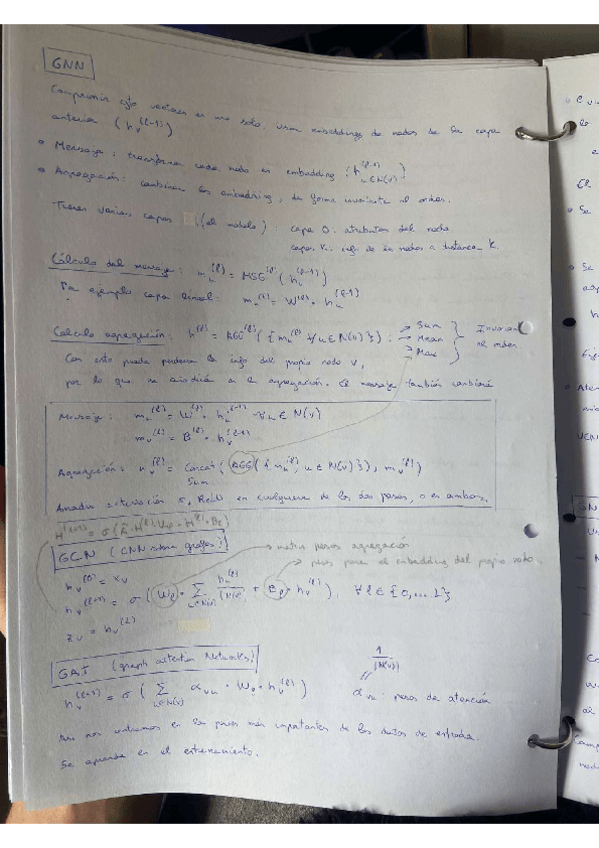 GNN
Comprimir vectores en uno solo. Usan embeddings de nodos de la capa
anterior (h_v^(l-1))
• Mensaje: transformar cada nodo en embedding (h_{u∈N(v)}^(l-1))
• Agregación: combinar los embedding, de forma invariante al orden.
Tienes varias capas (el modelo): capa 0: atributos del nodo
capa K: info. de los nodos a distancia K.
Cálculo del mensaje: m_u^(l) = MSG^(l) (h_u^(l-1))
Por ejemplo capa lineal: m_u^(l) = W^(l) · h_u^(l-1)
Cálculo agregación: h^(l) = AGG^(l) ({m_u^(l) ∀u∈N(v)}) :
→ Sum
→ Mean
→ Max
} Invariante
al orden
Con esto puede perderse la info del propio nodo v,
por lo que se añadirá en la agregación. El mensaje también cambiará
Mensaje: m_u^(l) = W^(l) · h_u^(l-1) ∀u∈N(v)
m_v^(l) = B^(l) · h_v^(l-1)
Agregación: h_v^(l) = Concat (AGG ({m_u^(l), u∈N(v)}), m_v^(l))
Sum
Añadir activación σ, ReLU en cualquiera de los dos pasos, o en ambos.
GCN (CNN sobre grafos)
→ matriz pesos agregación
→ pesos para el embedding del propio nodo.
h_v^(0) = x_v
h_v^(l+1) = σ (W_l · Σ_{u∈N(v)} h_u^(l) / |N(v)| + B_l · h_v^(l)), ∀l∈{0,...L}
z_v = h_v^(L)
GAT (graph attention Networks)
1/|N(v)|
h_v^(l+1) = σ (Σ_{u∈N(v)} α_vu · W_l · h_v^(l))
α_vu: pesos de atención
Así nos centramos en las partes más importantes de los datos de entrada.
Se aprende en el entrenamiento.